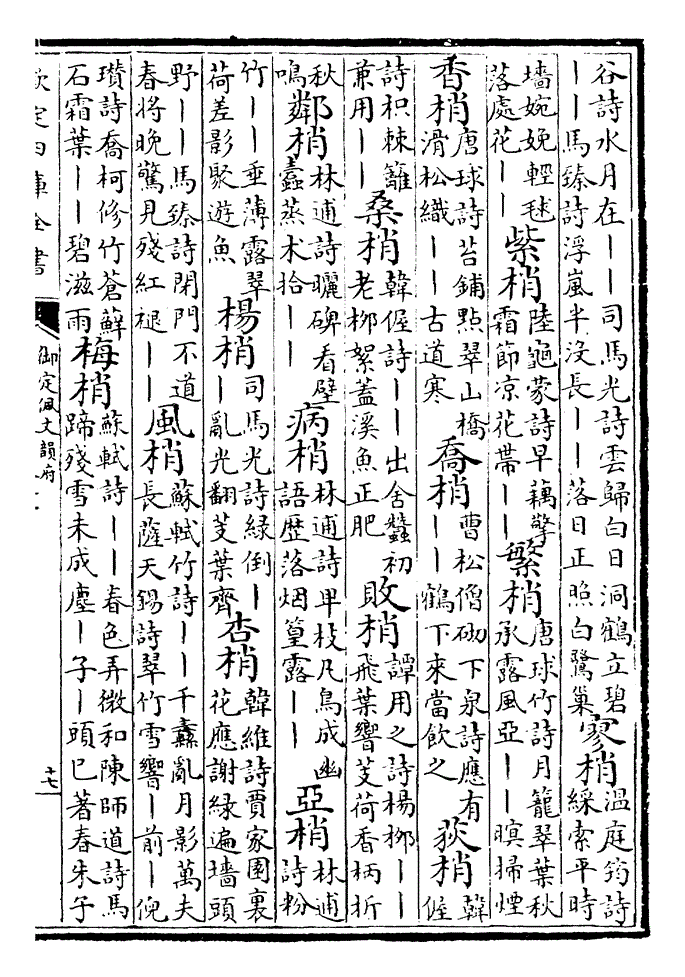 谷詩水月在丨丨司馬光詩雲歸白日洞鶴立碧
丨丨馬臻詩浮嵐半没長丨丨落日正照白鷺巢
寥梢
溫庭筠詩
綵索平時
墻婉娩輕毬
落處花丨丨
紫梢
陸龜蒙詩早藕擎
霜節凉花帶丨丨
繁梢
唐球竹詩月籠翠葉秋
承露風亞丨丨暝掃煙
香梢
唐球詩苔鋪點翠山橋
滑松織丨丨古道寒
喬梢
曹松僧砌下泉詩應有
丨丨鶴下來當飲之
荻梢
韓
偓
詩枳棘籬
兼用丨丨
桑梢
韓偓詩丨丨出舍蠶初
老柳絮蓋溪魚正肥
敗梢
譚用之詩楊柳丨丨
飛葉響芰荷香柄折
秋
鳴
鄰梢
林逋詩曬碑看壁
蠧蒸术拾丨丨
病梢
林逋詩甲枝凡鳥成幽
語歷落烟篁露丨丨
亞梢
林逋
詩粉
竹丨丨垂薄露翠
荷差影聚遊魚
楊梢
司馬光詩綠倒丨
丨亂光翻芰葉齊
杏梢
韓維詩賈家園裏
花應謝緑遍墻頭
野丨丨馬臻詩閉門不道
春將晚驚見殘紅褪丨丨
風梢
蘇軾竹詩丨丨千纛亂月影萬夫
長薩天錫詩翠竹雪響丨前丨倪
瓚詩喬柯修竹蒼蘚
石霜葉丨丨碧滋雨
梅梢
蘇軾詩丨丨春色弄微和陳師道詩馬
蹄殘雪未成塵丨子丨頭巳著春朱子
欽定四庫全書
御定佩文韻府
十七